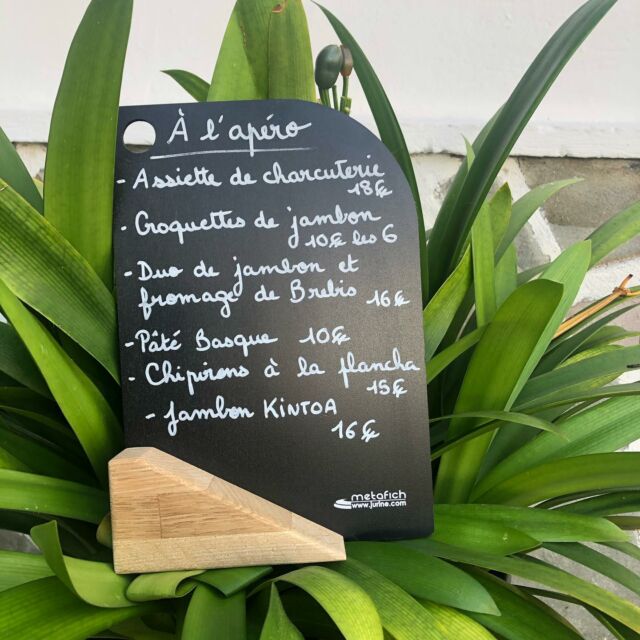 À l'apéro
- Assiette de charcuterie
18€
- Croquettes de jambon
10€ les 6
- Duo de jambon et
fromage de Brebis 16€
- Pâté Basque 10€
- Chipirons à la plancha
15€
- Jambon KINTOA
16€
metafich
www.jurine.com